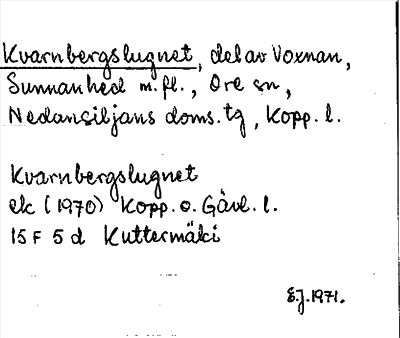 Kvarnbergslugnet, del av Voxnan,
Sunnanhed m.fl., Ore sn,
Nedansiljans doms. tg, Kopp. l.
Kvarnbergslugnet
ek (1970) Kopp. o. Gävl. l.
15 F 5 d Kuttermäki
E.J. 1971.